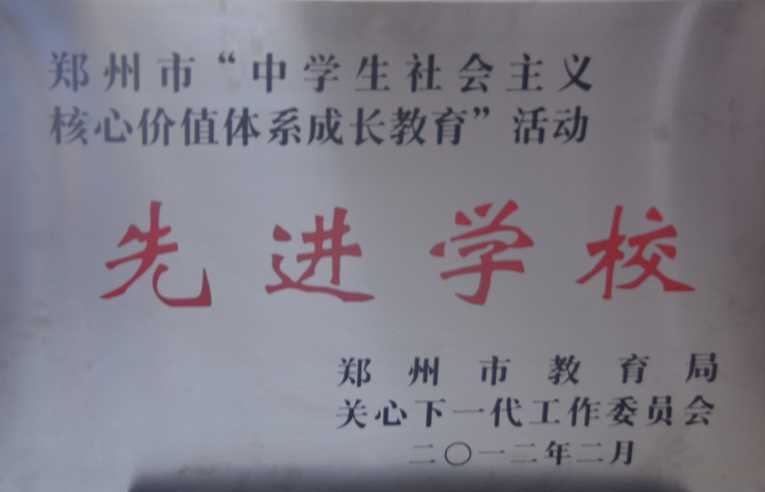 郑州市“中学生社会主义
核心价值体系成长教育”活动
先进学校
郑州市教育局
关心下一代工作委员会
二〇一二年二月